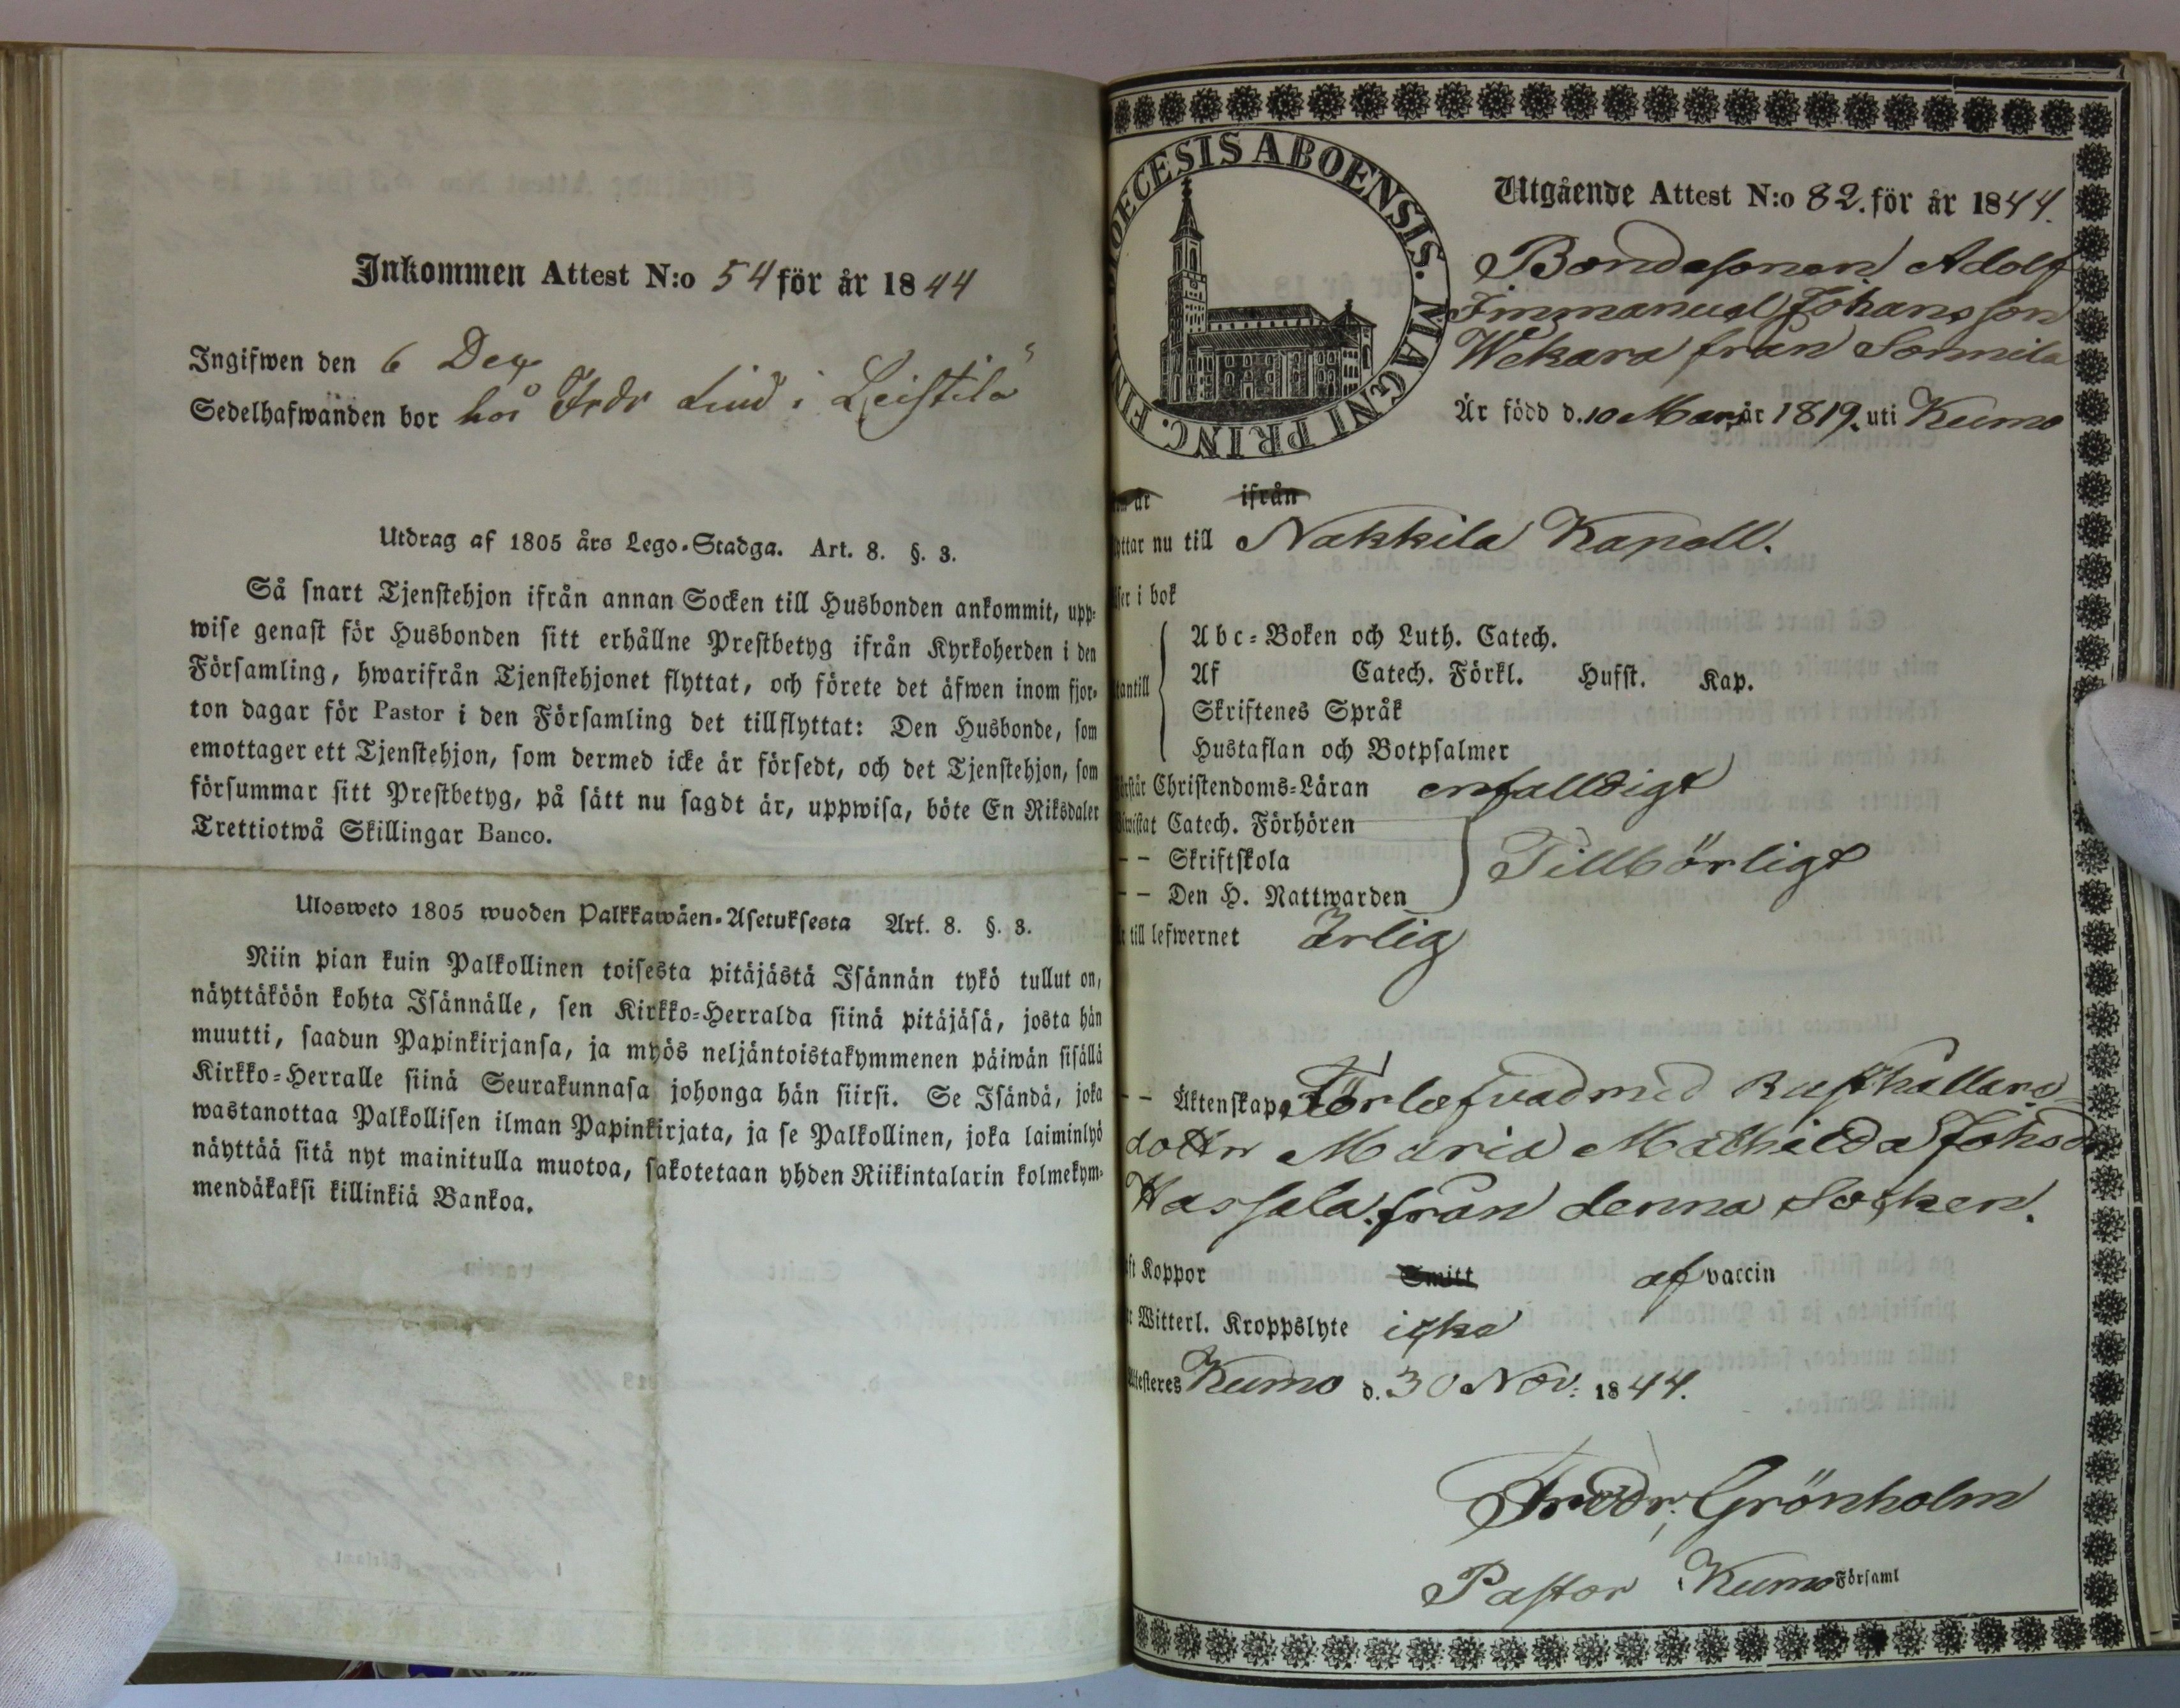 Inkommen Attest N:o 54 för år 1844
Ingifwen den 6 Dec
Sedelhafwanden bor hos Frdr Lind i Leistilä
Utdrag af 1805 års Lego-Stadga. Art. 8. §. 3.
Så snart Tjenstehjon ifrån annan Socken till Husbonden ankommit, upp-
wise genast för Husbonden sitt erhållne Prestbetyg ifrån Kyrkoherden i den
Församling, hwarifrån Tjenstehjonet flyttat, och förete det äfwen inom fjor-
ton dagar för Pastor i den Församling det tillflyttat: Den Husbonde, som
emottager ett Tjenstehjon, som dermed icke är försedt, och det Tjenstehjon, som
försummar sitt Prestbetyg, på sätt nu sagdt är, uppwisa, böte En Riksdaler
Trettiotwå Skillingar Banco.
Ulosweto 1805 wuoden Palkkawäen-Asetuksesta Art. 8. §. 3.
Niin pian kuin Palkollinen toisesta pitäjästä Isännän tykö tullut on,
näyttäköön kohta Isännälle, sen Kirkko-Herralda siinä pitäjäsä, josta hän
muutti, saadun Papinkirjansa, ja myös neljäntoistakymmenen päiwän sisällä
Kirkko-Herralle siinä Seurakunnasa johonga hän siirsi. Se Isändä, joka
wastanottaa Palkollisen ilman Papinkirjata, ja se Palkollinen, joka laiminlyö
näyttää sitä nyt mainitulla muotoa, sakotetaan yhden Riikintalarin kolmekym-
mendäkaksi killinkiä Bankoa.
DIOECESIS ABOENSIS. MAGNI PRINC. FIN
Utgående Attest N:o 82. för år 1844.
Bondesonen Adolf
Immanuel Johansson
Wekara från Sonnila
Är född d. 10 Mars år 1819. uti Kumo
om är ifrån
yttar nu till Nakkila Kapell.
äser i bok
tantill
Abc-Boken och Luth. Catech.
Af Catech. Förkl. Hufst. Kap.
Skriftenes Språk
Hustaflan och Botpsalmer
örstår Christendoms-Läran enfalldigt
iwistat Catech. Förhören
-- Skriftskola Tillbörligt
-- Den H. Nattwarden
r till lefwernet Ärlig
-- Äktenskap, Förlofvad med Rusthållars-
dottn Maria Mathilda Johsdr
Hassala. från denna Socken.
ft Koppor Smitt af vaccin
r Witterl. Kroppslyte icke
ttesteres Kumo d. 30 Nov: 1844.
Fredr: Grönholm
Pastor i Kumo Församl